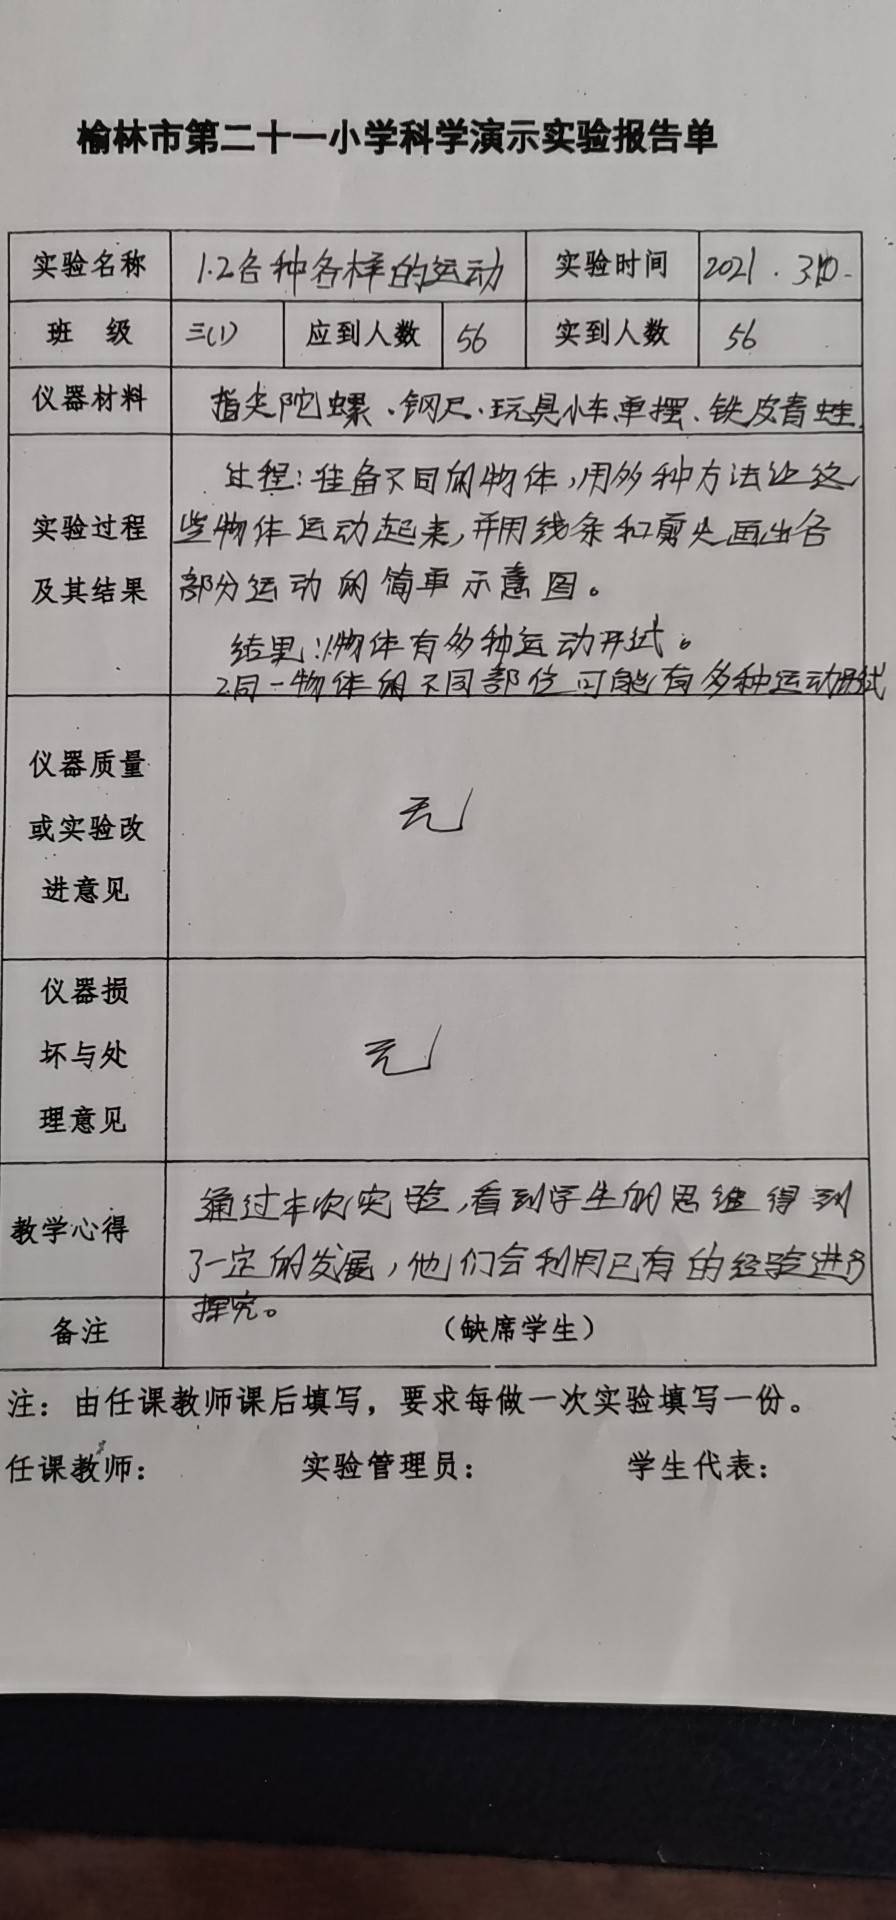 榆林市第二十一小学科学演示实验报告单
实验名称 1.2各种各样的运动 实验时间 2021.3.10.
班 级 三(1) 应到人数 56 实到人数 56
仪器材料 指尖陀螺、钢尺、玩具小车、单摆、铁皮青蛙
过程:准备不同的物体,用多种方法让这
实验过程 些物体运动起来,并用线条和剪头画出各
及其结果 部分运动的简单示意图。
结果:1物体有多种运动形式。
2.同一物体的不同部位可能有多种运动形式
仪器质量
或实验改 无
进意见
仪器损
坏与处 无
理意见
通过本次实验,看到学生的思维得到
教学心得 了一定的发展,他们会利用已有的经验进行
探究。
备注 (缺席学生)
注:由任课教师课后填写,要求每做一次实验填写一份。
任课教师: 实验管理员: 学生代表: